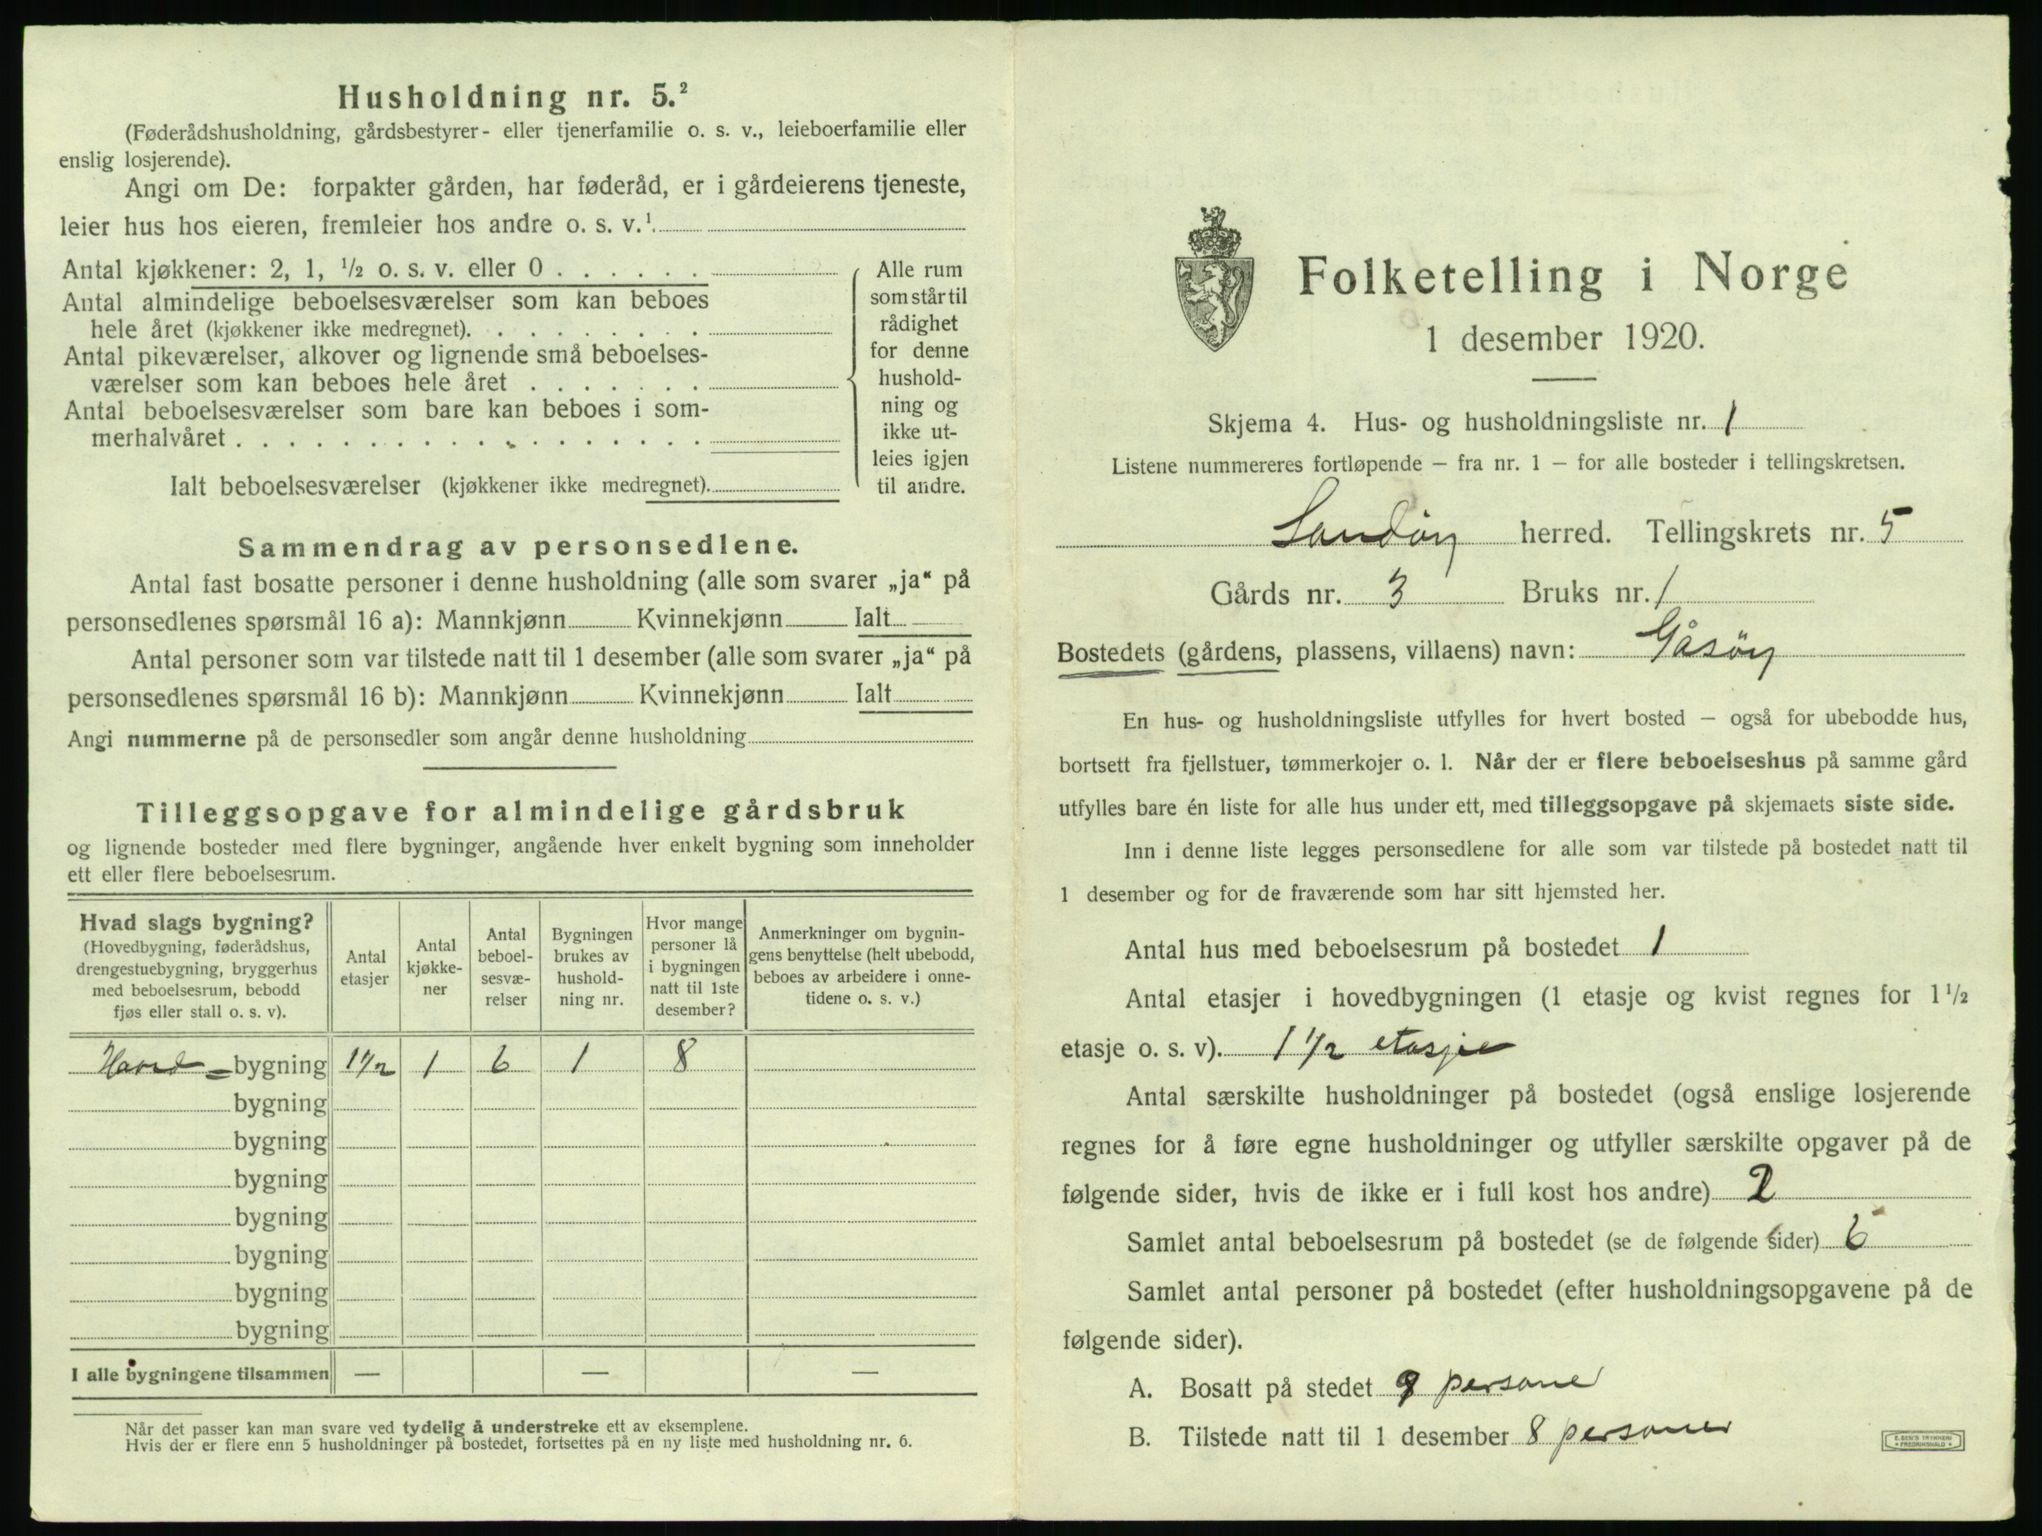 Husholdning nr. 5.²
(Føderådshusholdning, gårdsbestyrer- eller tjenerfamilie o. s. v., leieboerfamilie eller
enslig losjerende).
Angi om De: forpakter gården, har føderåd, er i gårdeierens tjeneste,
leier hus hos eieren, fremleier hos andre o. s. v.¹
Antal kjøkkener: 2, 1, ½ o. s. v. eller 0 . . . . . .
Antal almindelige beboelsesværelser som kan beboes
hele året (kjøkkener ikke medregnet). . . . . . . . .
Antal pikeværelser, alkover og lignende små beboelses-
værelser som kan beboes hele året . . . . . . .
Antal beboelsesværelser som bare kan beboes i som-
merhalvåret . . . . . . . . . . . . . . . . . .
Ialt beboelsesværelser (kjøkkener ikke medregnet).
Alle rum
som står til
rådighet
for denne
hushold-
ning og
ikke ut-
leies igjen
til andre.
Sammendrag av personsedlene.
Antal fast bosatte personer i denne husholdning (alle som svarer „ja“ på
personsedlenes spørsmål 16 a): Mannkjønn Kvinnekjønn Ialt
Antal personer som var tilstede natt til 1 desember (alle som svarer „ja“ på
personsedlenes spørsmål 16 b): Mannkjønn Kvinnekjønn Ialt
Angi nummerne på de personsedler som angår denne husholdning
Tilleggsopgave for almindelige gårdsbruk
og lignende bosteder med flere bygninger, angående hver enkelt bygning som inneholder
ett eller flere beboelsesrum.
Hvad slags bygning?
(Hovedbygning, føderådshus,
drengestuebygning, bryggerhus
med beboelsesrum, bebodd
fjøs eller stall o. s. v).
Antal
etasjer
Antal
kjøkke-
ner
Antal
beboel-
sesvæ-
relser
Bygningen
brukes av
hushold-
ning nr.
Hvor mange
personer lå
i bygningen
natt til 1ste
desember?
Anmerkninger om bygnin-
gens benyttelse (helt ubebodd,
beboes av arbeidere i onne-
tidene o. s. v.)
Hoved-bygning 1½ 1 6 1 8
bygning
bygning
bygning
bygning
bygning
bygning
bygning
I alle bygningene tilsammen — — —
Når det passer kan man svare ved tydelig å understreke ett av eksemplene.
Hvis der er flere enn 5 husholdninger på bostedet, fortsettes på en ny liste med husholdning nr. 6.
Folketelling i Norge
1 desember 1920.
Skjema 4. Hus- og husholdningsliste nr. 1
Listene nummereres fortløpende – fra nr. 1 – for alle bosteder i tellingskretsen.
Sandøy herred. Tellingskrets nr. 5
Gårds nr. 3 Bruks nr. 1
Bostedets (gårdens, plassens, villaens) navn: Gåsøy
En hus- og husholdningsliste utfylles for hvert bosted – også for ubebodde hus,
bortsett fra fjellstuer, tømmerkojer o. l. Når der er flere beboelseshus på samme gård
utfylles bare én liste for alle hus under ett, med tilleggsopgave på skjemaets siste side.
Inn i denne liste legges personsedlene for alle som var tilstede på bostedet natt til
1 desember og for de fraværende som har sitt hjemsted her.
Antal hus med beboelsesrum på bostedet 1
Antal etasjer i hovedbygningen (1 etasje og kvist regnes for 1½
etasje o. s. v). 1½ etasje
Antal særskilte husholdninger på bostedet (også enslige losjerende
regnes for å føre egne husholdninger og utfyller særskilte opgaver på de
følgende sider, hvis de ikke er i full kost hos andre) 2
Samlet antal beboelsesrum på bostedet (se de følgende sider) 6
Samlet antal personer på bostedet (efter husholdningsopgavene på de
følgende sider).
A. Bosatt på stedet 9 persone
B. Tilstede natt til 1 desember 8 personer
E. SEM'S TRYKKERI
FREDRIKSHALD